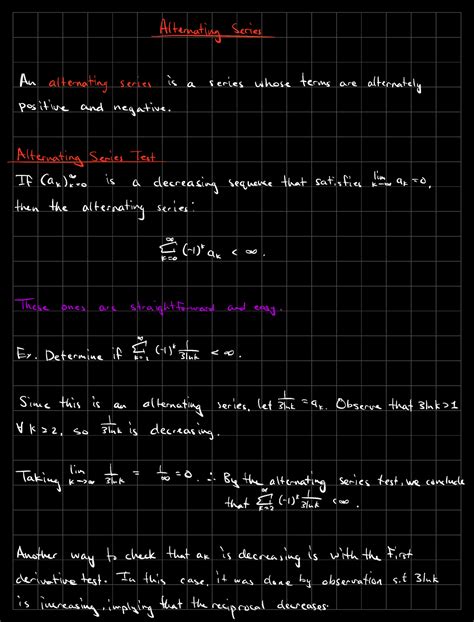 Alternating Series
An alternating series is a series whose terms are alternately
positive and negative.
Alternating Series Test
If (aₖ)ₖ₌₀^∞ is a decreasing sequence that satisfies lim k→∞ aₖ = 0,
then the alternating series:
∞ Σ k=0 (-1)ᵏ aₖ < ∞.
These ones are straightforward and easy.
Ex. Determine if ∞ Σ k=2 (-1)ᵏ 1/3lnk < ∞.
Since this is an alternating series, let 1/3lnk = aₖ. Observe that 3lnk > 1
∀ k ≥ 2, so 1/3lnk is decreasing.
Taking lim k→∞ 1/3lnk = 1/∞ = 0. ∴ By the alternating series test, we conclude
that ∞ Σ k=2 (-1)ᵏ 1/3lnk < ∞.
Another way to check that aₖ is decreasing is with the first
derivative test. In this case, it was done by observation s.t 3lnk
is increasing, implying that the reciprocal decreases.